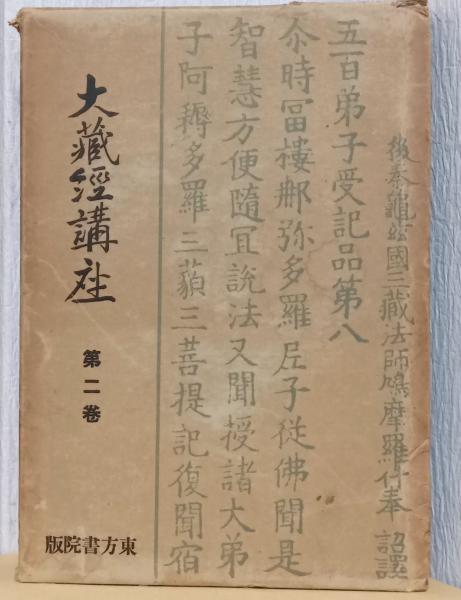 大藏經講座
第二卷
東方書院版
後秦龜茲國三藏法師鳩摩羅什奉 詔譯
五百弟子受記品第八
尒時冨樓那弥多羅尼子從佛聞是
智慧方便隨冝説法又聞授諸大弟
子阿耨多羅三藐三菩提記復聞宿